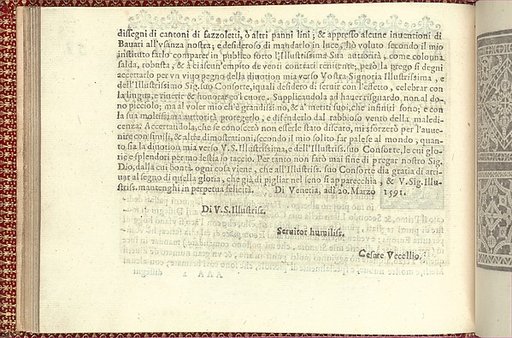 dissegni di cantoni di fazzoletti, ò altri panni lini; & appresso alcune inuentioni di
Bauari all'vsanza nostra; e desideroso di mandarlo in luce, hò voluto secondo il mio
instituto farlo comparer in publico sotto l'Illustrissima Sua autorità, come colonna
salda, robusta, & à ciascun'empito de venti contrari renitente, però la prego si degni
accettarlo per vn viuo pegno della diuotion mia verso Vostra Signoria Illustrissima, e
dell'Illustrissimo Sig. suo Consorte, i quali desidero di seruir con l'effetto, celebrar con
la lingua, e riuerir & honorar co'l cuore. Supplicandola ad hauer risguardo, non al do-
no piccolo; ma al voler mio ch'è grandissimo, & a' meriti suoi, che infiniti sono; e con
la sua moltissima autorità proteggerlo, e difenderlo dal rabbioso vento della maledi-
cenza. Accertandola, che se conoscerò non esserle stato discaro, mi sforzerò per l'aue-
nire con simili, & altre dimostrationi, secondo il mio solito far palese al mondo, quan-
to sia la diuotion mia verso V. S. Illustrissima, e dell'Illustriss. suo Consorte, le cui glo-
rie e splendori per modestia io taccio. Per tanto non farò mai fine di pregar nostro Sig.
Dio, dalla cui bontà ogni cosa viene, che all'Illustriss. suo Consorte dia gratia di arri-
uar al segno di quella gloria, che già di pigliar nel seno si apparecchia, & V. Sig. Illu-
striss. mantenghi in perpetua felicità. Di Venetia, adì 20. Marzo 1591.
Di V. S. Illustriss.
Seruitor humiliss.
Cesare Vecellio.